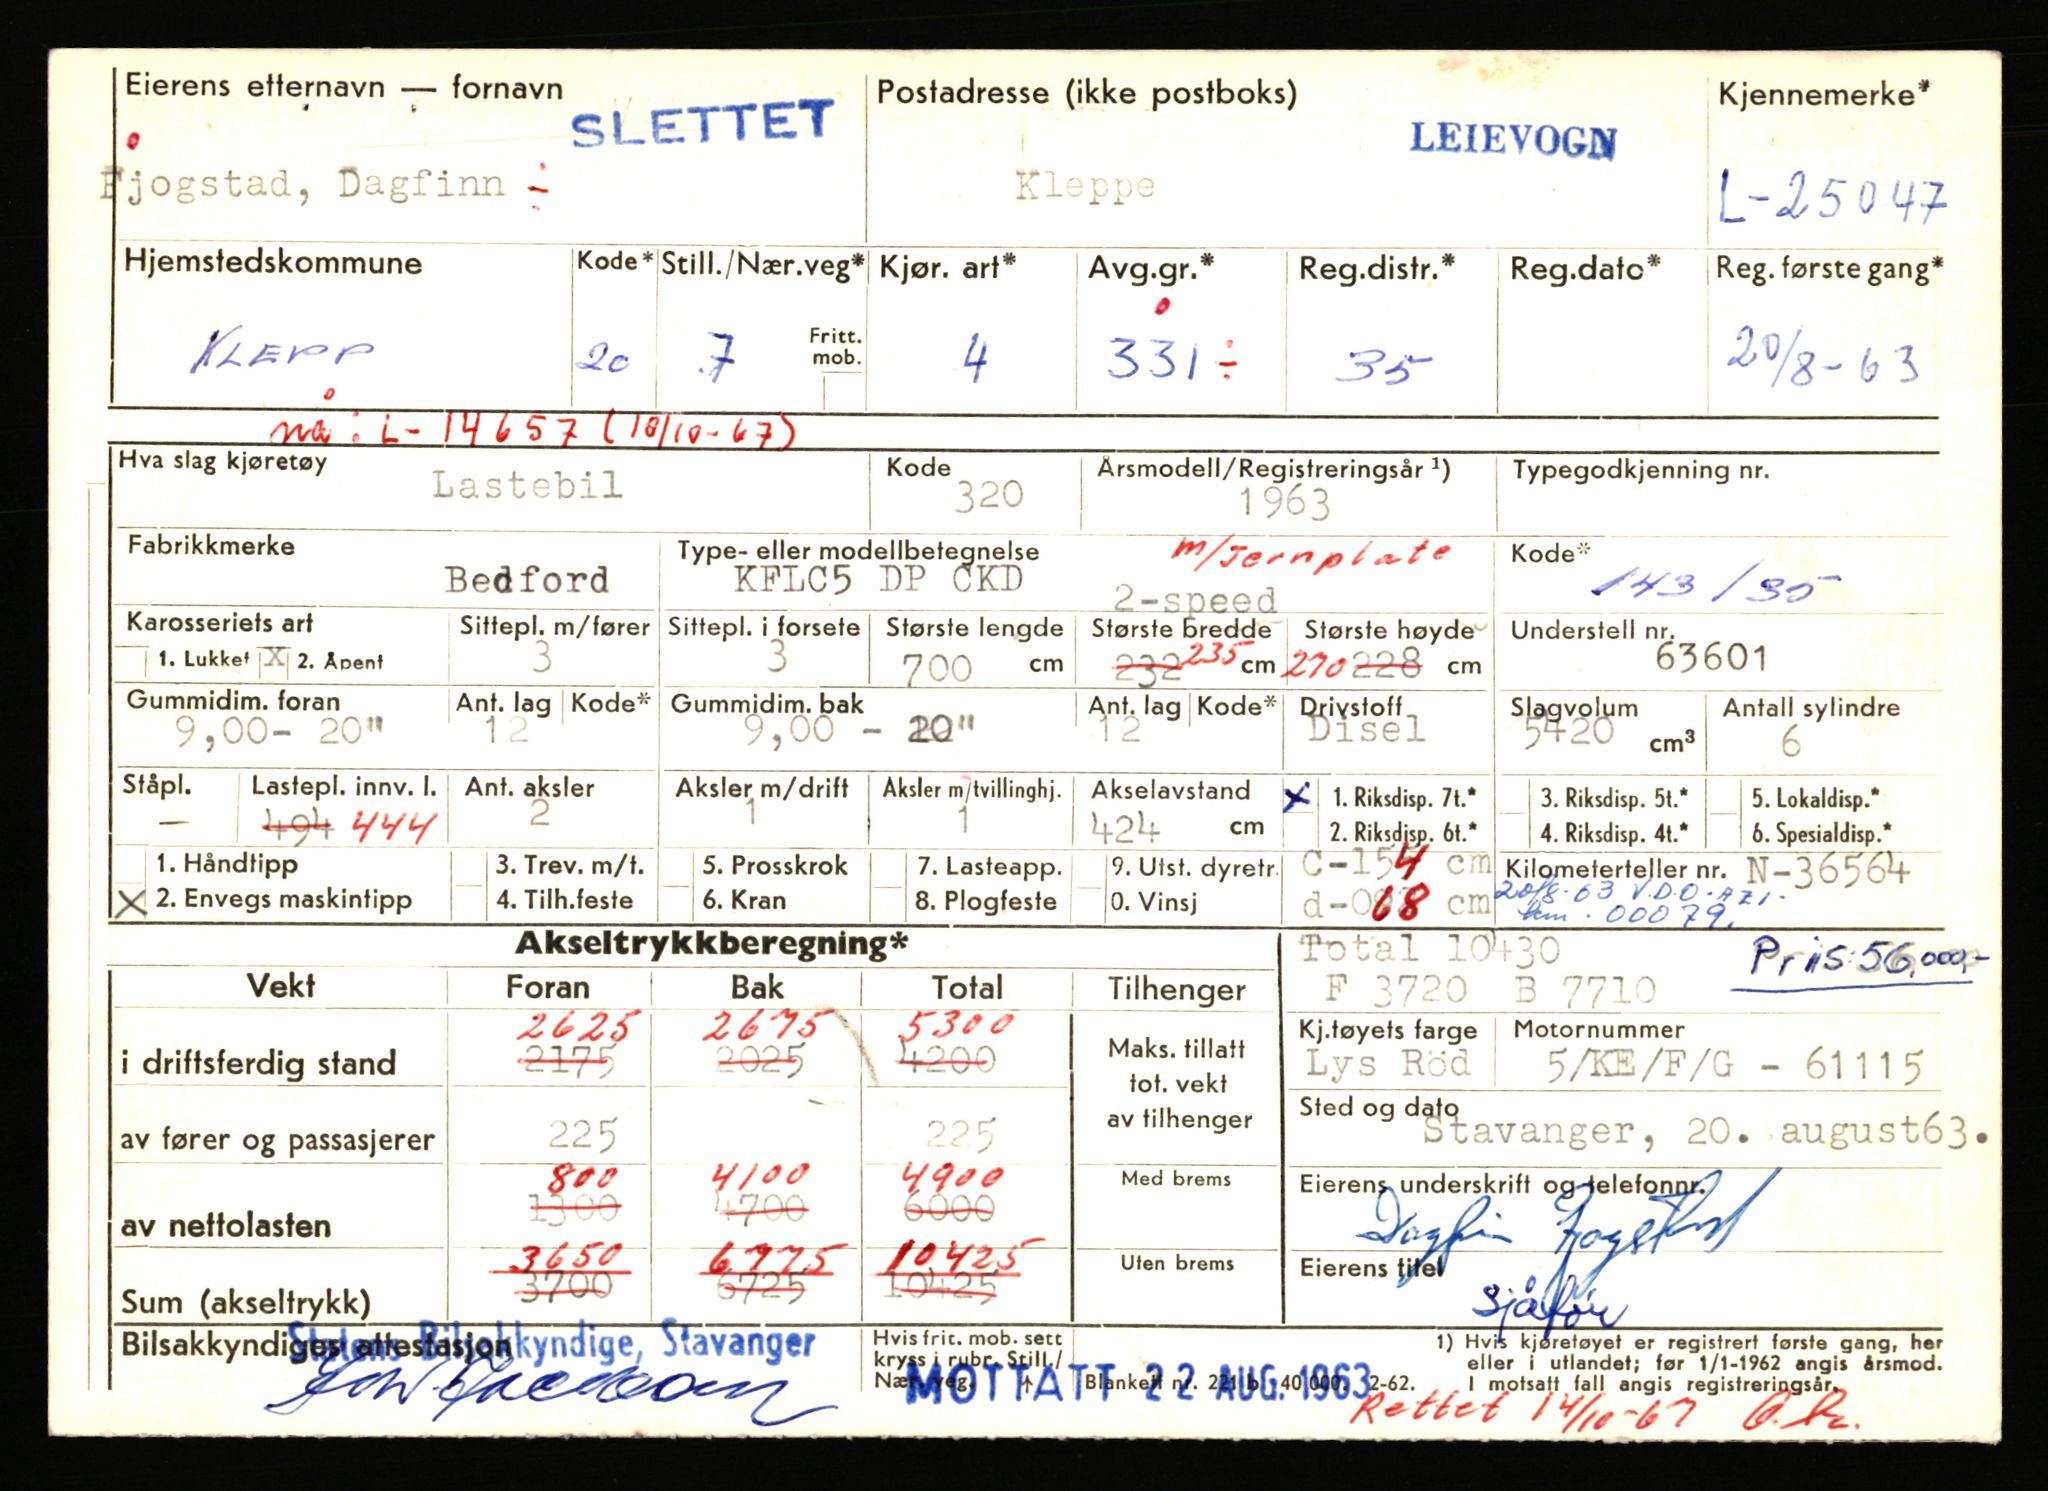 Eierens etternavn — fornavn
SLETTET
Postadresse (ikke postboks)
LEIEVOGN
Kjennemerke*
Fjogstad, Dagfinn ÷
Kleppe
L-25047
Hjemstedskommune Kode* Still./Nær.veg* Kjør. art* Avg.gr.* Reg.distr.* Reg.dato* Reg. første gang*
KLEPP 20 7 Fritt. mob. 4 331 ÷ 35 20/8-63
nå: L-14657 (10/10-67)
Hva slag kjøretøy Kode Årsmodell/Registreringsår ¹) Typegodkjenning nr.
Lastebil 320 1963
Fabrikkmerke Type- eller modellbetegnelse m/Jernplate Kode*
Bedford KFLC5 DP CKD 2-speed 143/35
Karosseriets art Sittepl. m/fører Sittepl. i forsete Største lengde Største bredde Største høyde Understell nr.
1. Lukket X 2. Åpent 3 3 700 cm 232 235 cm 270 228 cm 63601
Gummidim. foran Ant. lag Kode* Gummidim. bak Ant. lag Kode* Drivstoff Slagvolum Antall sylindre
9,00- 20" 12 9,00 - 20" 12 Disel 5420 cm³ 6
Ståpl. Lastepl. innv. l. Ant. aksler Aksler m/drift Aksler m/tvillinghj. Akselavstand X 1. Riksdisp. 7t.* 3. Riksdisp. 5t.* 5. Lokaldisp.*
— 494 444 2 1 1 424 cm 2. Riksdisp. 6t.* 4. Riksdisp. 4t.* 6. Spesialdisp.*
1. Håndtipp 3. Trev. m/t. 5. Prosskrok 7. Lasteapp. 9. Utst. dyretr. C-154 cm Kilometerteller nr. N-36564
X 2. Envegs maskintipp 4. Tilh.feste 6. Kran 8. Plogfeste 0. Vinsj d-068 cm 20/8-63 V.D.O. AZ1.
km. 00079.
Akseltrykkberegning*
Total 10430
Priis: 56,000,-
F 3720 B 7710
Vekt Foran Bak Total Tilhenger
2625 2675 5300
i driftsferdig stand 2175 2025 4200
Maks. tillatt tot. vekt av tilhenger
Kj.tøyets farge Motornummer
Lys Röd 5/KE/F/G - 61115
av fører og passasjerer 225 225
Sted og dato
Stavanger, 20. august63.
800 4100 4900
av nettolasten 1300 4700 6000
Med brems
Eierens underskrift og telefonnr.
Dagfin Fjogstad
3650 6775 10425
Sum (akseltrykk) 3700 6725 10425
Uten brems
Eierens titel
Sjåfør
Bilsakkyndiges attestasjon
Statens Bilsakkyndige, Stavanger
Hvis frit. mob. sett
kryss i rubr. Still./
Nær. veg. ↑ Blankett nr. 221 b. 40 000. 2-62.
MOTTATT 22 AUG. 1963
1) Hvis kjøretøyet er registrert første gang, her
eller i utlandet; før 1/1-1962 angis årsmod.
I motsatt fall angis registreringsår.
Rettet 14/10-67